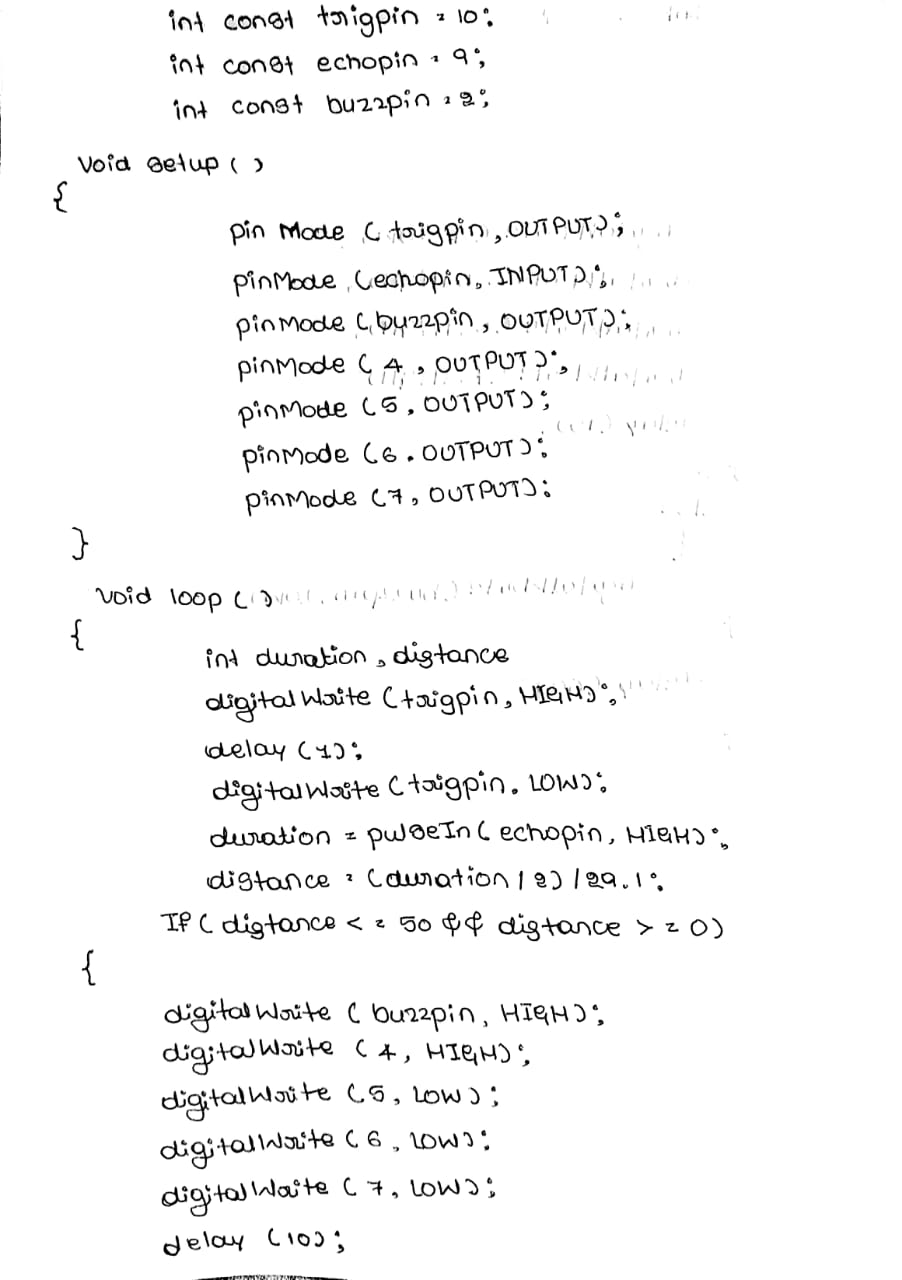 int const trigpin = 10;
int const echopin = 9;
int const buzzpin = 2;
void setup ( )
{
pin Mode ( trigpin, OUTPUT);
pinMode (echopin, INPUT);
pinMode (buzzpin, OUTPUT);
pinMode ( 4, OUTPUT);
pinMode (5, OUTPUT);
pinMode (6. OUTPUT);
pinMode (7, OUTPUT);
}
void loop ( )
{
int duration, distance
digital Write (trigpin, HIGH);
delay (1);
digitalWrite (trigpin. LOW);
duration = pulseIn ( echopin, HIGH);
distance = (duration / 2) / 29.1;
If ( distance < = 50 && distance > = 0)
{
digital Write ( buzzpin, HIGH);
digitalWrite ( 4, HIGH);
digitalWrite (5, LOW);
digitalWrite ( 6, LOW);
digitalWrite ( 7, LOW);
delay (10);